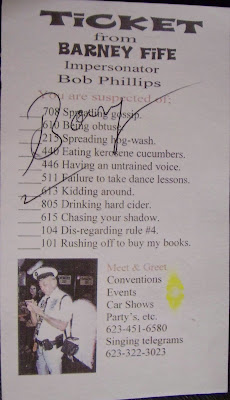 TiCKET
from
BARNEY FiFE
Impersonator
Bob Phillips
You are suspected of;
___708 Spreading gossip.
___610 Being obtuse.
___213 Spreading hog-wash.
___440 Eating kerosene cucumbers.
___446 Having an untrained voice.
___511 Failure to take dance lessons.
___613 Kidding around.
___805 Drinking hard cider.
___615 Chasing your shadow.
___104 Dis-regarding rule #4.
___101 Rushing off to buy my books.
Meet & Greet
Conventions
Events
Car Shows
Party's, etc.
623-451-6580
Singing telegrams
623-322-3023